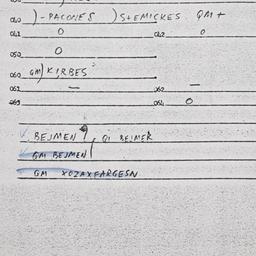 040 )-PACONES )STEMICKES QM+
041 0 042 0
050 0
060 GM) KIRBES
061 — 062 —
063 064 0
BEJMEN, QI BEJMER
GM BEJMEN
GM XOZAXFARGESN